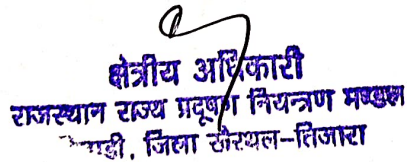 क्षेत्रीय अधिकारी
राजस्थान राज्य प्रदूषण नियन्त्रण मण्डल
जिला खैरथल-तिजारा